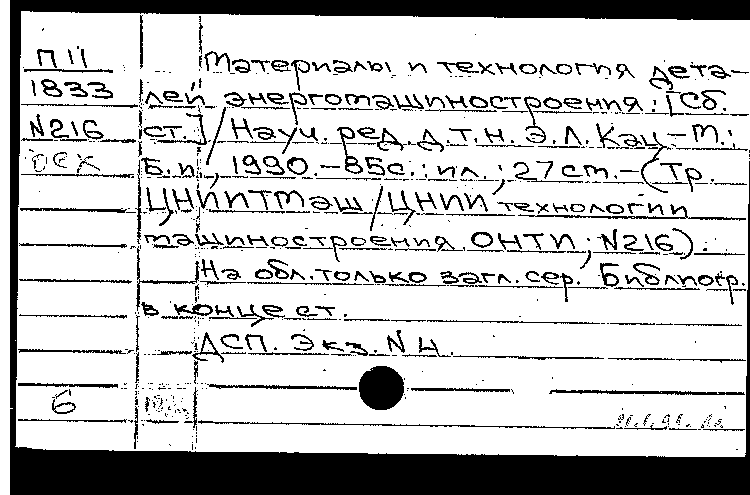 П 11
1833
N216
осх
Материалы и технология дета-
лей энергомашиностроения: [Сб.
ст.] / Науч. ред. д.т.н. Э.Л. Кац.-М.:
Б.и., 1990.-85с.: ил.; 27см.-(Тр.
ЦНИИТМаш / ЦНИИ технологии
машиностроения. ОНТИ; N216).
На обл. только загл. сер. Библиогр.
в конце ст.
ДСП. Экз. N4.
6